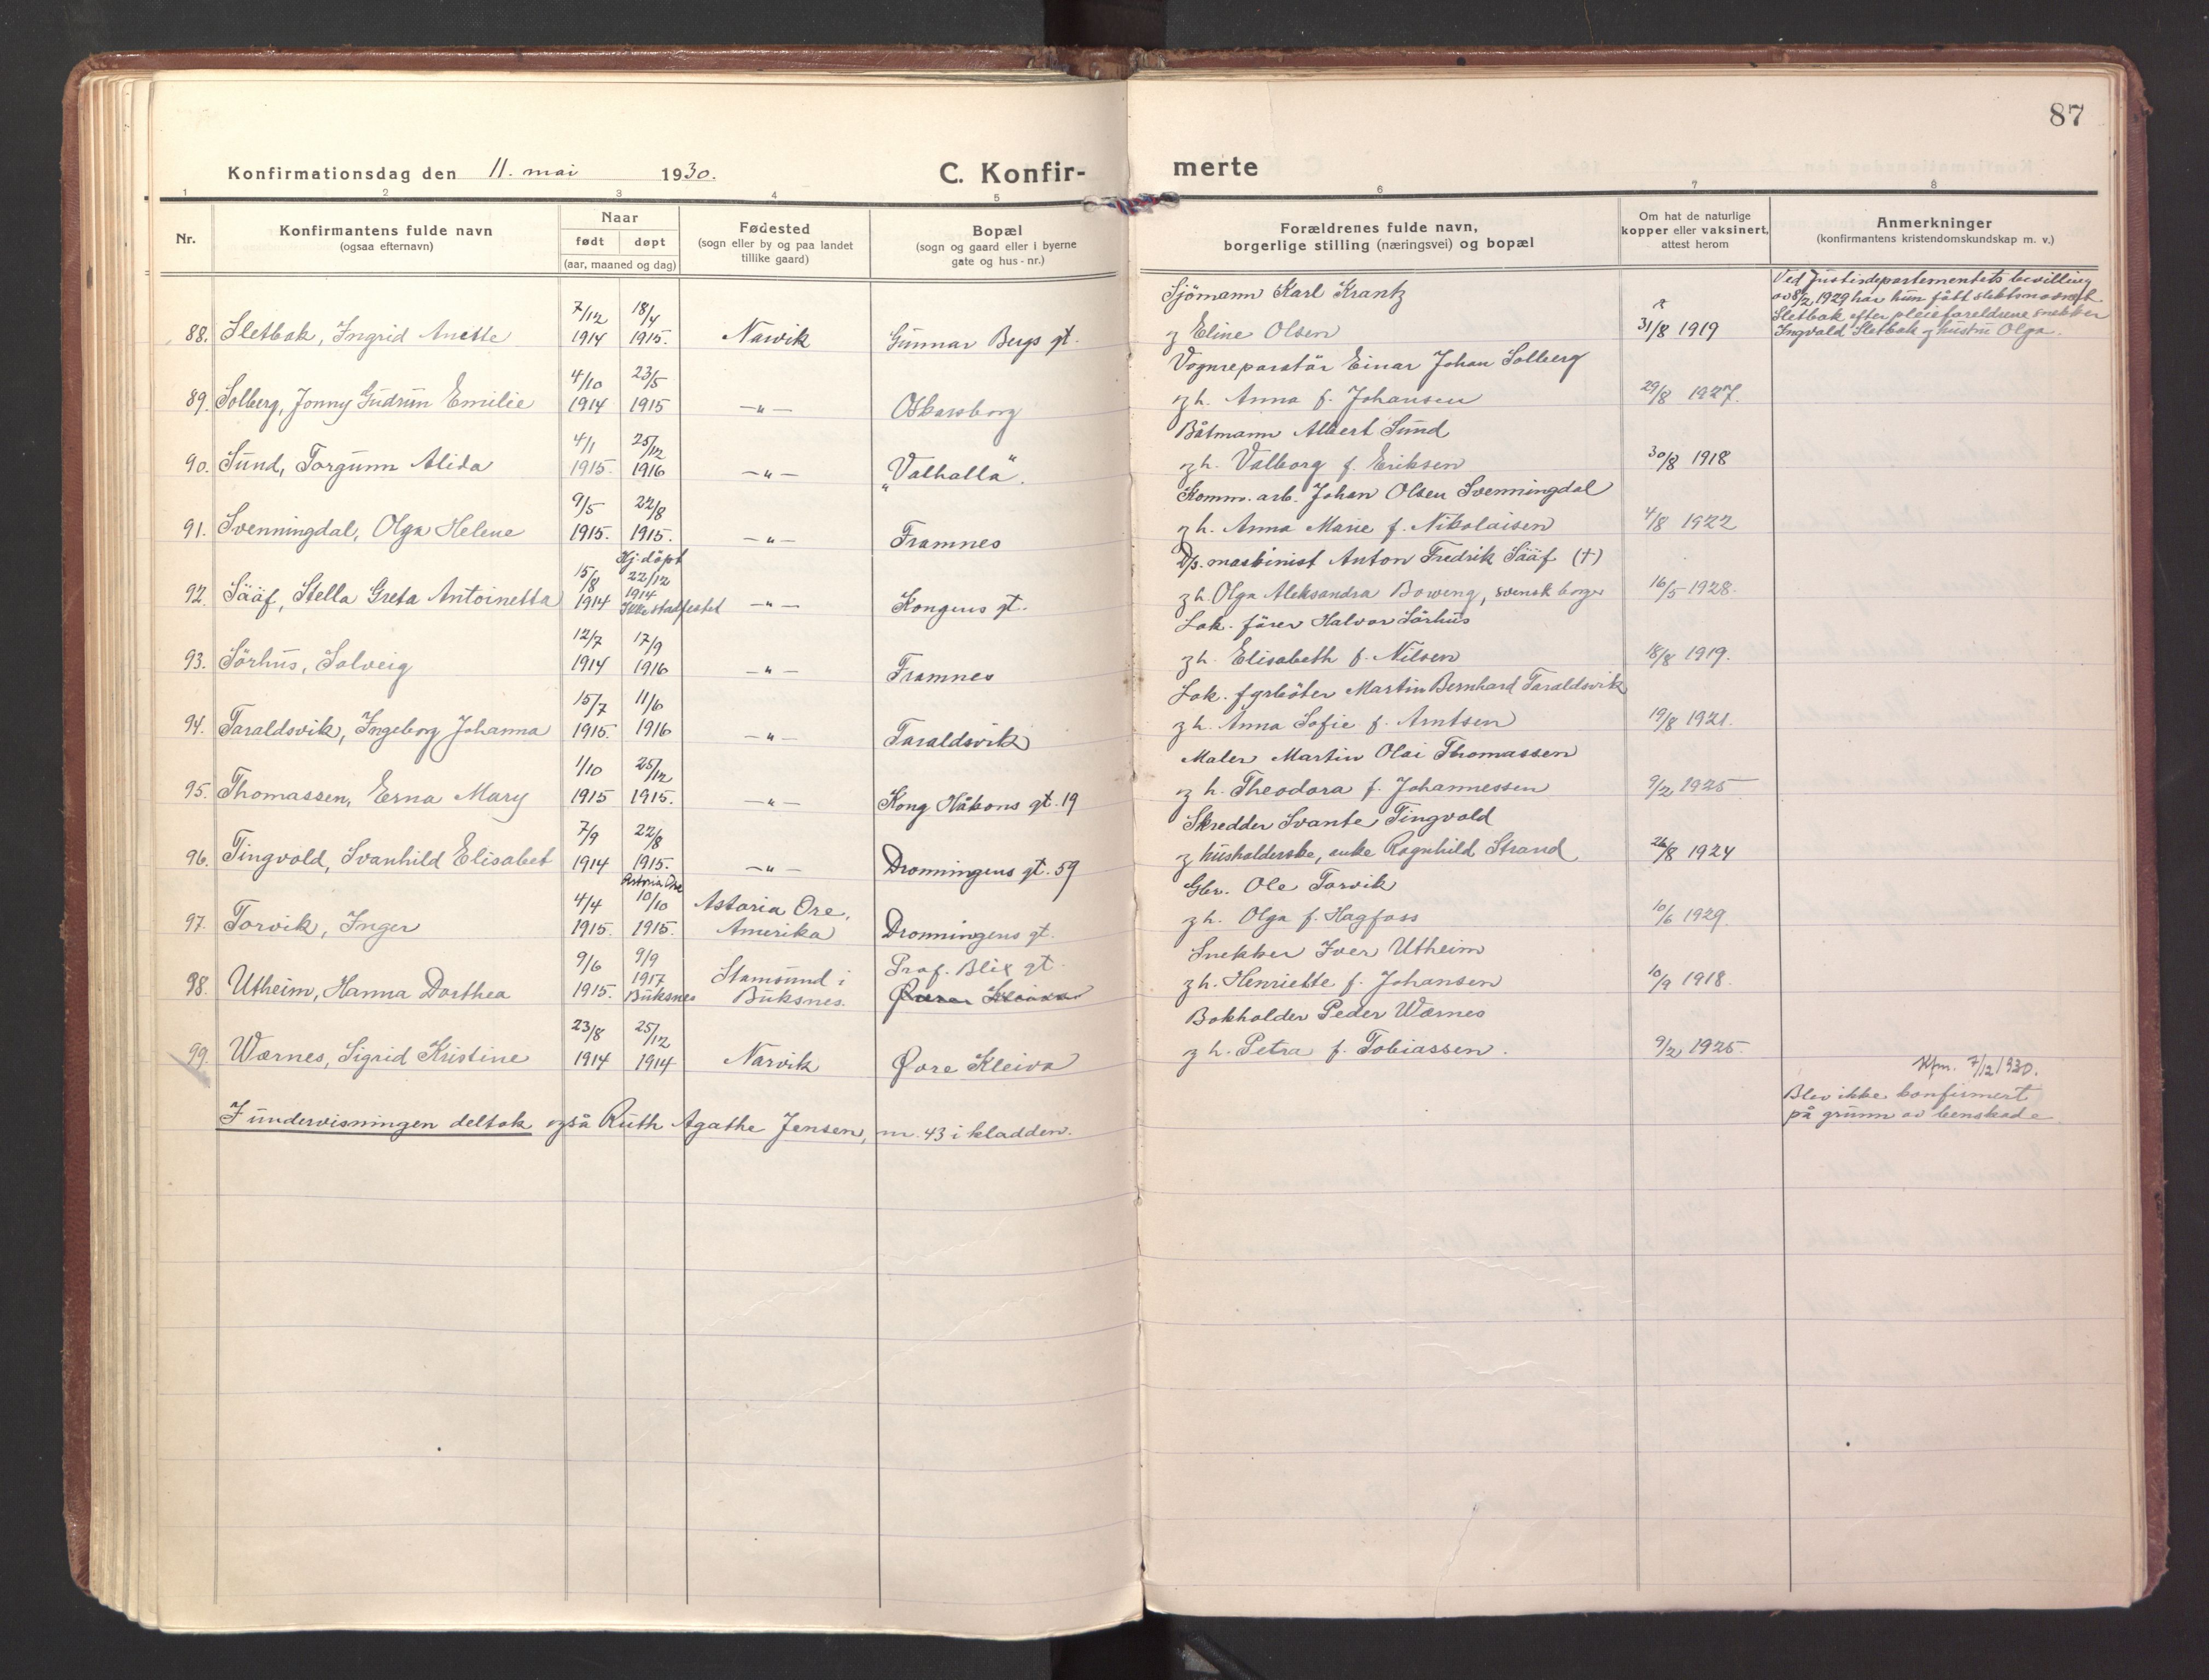 87
Konfirmationsdag den 11. mai 1930.
C. Konfir-
merte
1 2 3 4 5 6 7 8
Nr.
Konfirmantens fulde navn
(ogsaa efternavn)
Naar
født
døpt
(aar, maaned og dag)
Fødested
(sogn eller by og paa landet
tillike gaard)
Bopæl
(sogn og gaard eller i byerne
gate og hus-nr.)
Forældrenes fulde navn,
borgerlige stilling (næringsvei) og bopæl
Om hat de naturlige
kopper eller vaksinert,
attest herom
Anmerkninger
(konfirmantens kristendomskundskap m. v.)
88. Sletbak, Ingrid Anette 7/12 1914 18/4 1915. Narvik Gunnar Bergs gt.
Sjömann Karl Krantz
g Eline Olsen 31/8 1919
Ved Justisdepartementets bevilling
av 8/2 1929 har hun fått slektsnavnet
Sletbak efter pleieforeldrene snekker
Ingvald Sletbak g hustru Olga.
89. Solberg, Jonny Gudrun Emilie 4/10 1914 23/5 1915 —"— Oskarsborg
Vognreparatör Einar Johan Solberg
g h. Anna f. Johansen 29/8 1927.
90. Sund, Torgunn Alida 4/1 1915. 25/12 1916 —"— "Valhalla".
Båtmann Albert Sund
g h. Valborg f. Eriksen 30/8 1918
91. Svenningdal, Olga Helene 9/5 1915. 22/8 1915. —"— Framnes
Komm. arb. Johan Olsen Svenningdal
g h. Anna Marie f. Nikolaisen 4/8 1922
92. Sääf, Stella Greta Antoinetta 15/8 1914 Hj. döpt 22/12 1914 Ikke stadfestet —"— Kongens gt.
D/s. maskinist Anton Fredrik Sääf (†)
g h. Olga Aleksandra Boweng, svensk borger 16/5 1928.
93. Sörhus, Solveig 12/7 1914 17/9 1916 —"— Framnes
Lok. förer Halvor Sörhus
g h. Elisabeth f. Nilsen 18/8 1919.
94. Taraldsvik, Ingeborg Johanna 15/7 1915. 11/6 1916 —"— Taraldsvik
Lok. fyrböter Martin Bernhard Taraldsvik
g h. Anna Sofie f. Arntsen 19/8 1921.
95. Thomassen, Erna Mary 1/10 1915 25/12 1915. —"— Kong Håkons gt. 19
Maler Martin Olai Thomassen
g h. Theodora f. Johannessen 9/2 1925
96. Tingvold, Svanhild Elisabet 7/9 1914 22/8 1915. —"— Dronningens gt. 59
Skredder Svante Tingvold
g husholderske, enke Ragnhild Strand 26/8 1924
97. Torvik, Inger 4/4 1915. Astoria Ore 10/10 1915. Astoria Ore, Amerika Dronningens gt.
Gbr. Ole Torvik
g h. Olga f. Hagfoss 10/6 1929.
98. Utheim, Hanna Dorthea 9/6 1915. 9/9 1917 Buksnes Stamsund i Buksnes. Prof. Blix gt. Övre Kleiva
Snekker Iver Utheim
g h. Henriette f. Johansen 10/9 1918.
99. Wærnes, Sigrid Kristine 23/8 1914 25/12 1914 Narvik Övre Kleiva
Bokholder Peder Wærnes
g h. Petra f. Tobiassen. 9/2 1925.
Kfm. 7/12 1930.
Blev ikke konfirmert
på grunn av benskade
I undervisningen deltok også Ruth Agathe Jensen, nr. 43 i kladden.